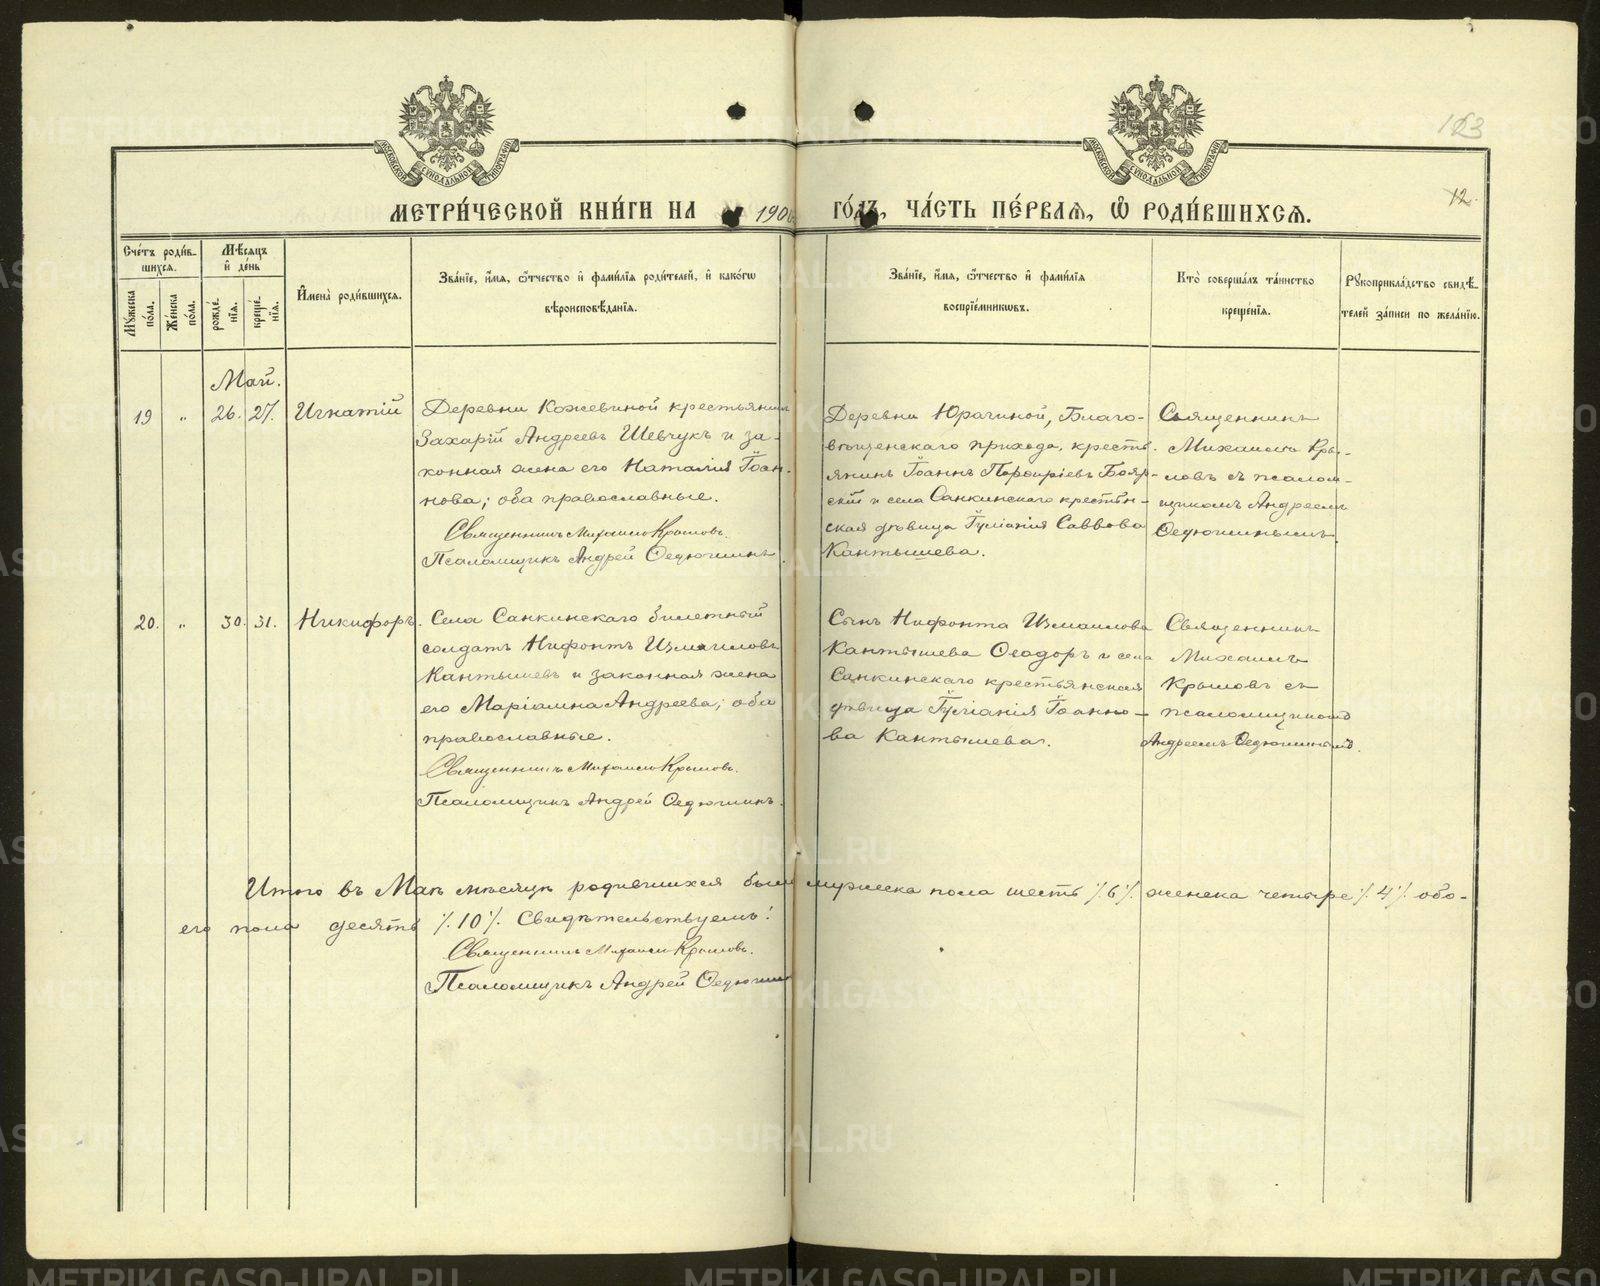 МОСКОВСКОЙ СѴНОДАЛЬНОЙ ТИПОГРАФІИ
МОСКОВСКОЙ СѴНОДАЛЬНОЙ ТИПОГРАФІИ
12.
МЕТРИ́ЧЕСКОЙ КНИ́ГИ НА 190 ГО́ДЪ, ЧА́СТЬ ПЕ́РВАЯ, Ѡ҆ РОДИ́ВШИХСЯ.
Сче́тъ роди́вшихся.
Мѹ́жеска по́ла.
Же́нска по́ла.
Мѣ́сяцъ и҆ де́нь
рожде́нїя.
креще́нїя.
И҆мена̀ роди́вшихся.
Зва́нїе, и҆́мя, ѻ҆́тчество и҆ фами́лїя роди́телей, и҆ како́гѡ
вѣроисповѣ́данїя.
Зва́нїе, и҆́мя, ѻ҆́тчество и҆ фами́лїя
воспрїе́мникѡвъ.
Кто̀ соверша́лъ та́инство
креще́нїя.
Рꙋкоприкла́дство свидѣ́-
телей за́писи по жела́нїю.
Май.
19 „ 26. 27. Игнатій
Деревни Кожевиной крестьянинъ
Захарій Андреевъ Шевчукъ и за-
конная жена его Наталія Іоан-
нова; оба православные.
Священникъ Михаилъ Крыловъ.
Псаломщикъ Андрей Ѳедюшинъ.
Деревни Юрагиной, Благо-
вѣщенскаго прихода, кресть-
янинъ Іоаннъ Порфиріевъ Бояр-
скій и села Санкинскаго крестьян-
ская дѣвица Іуліанія Саввова
Кантышева.
Священникъ
Михаилъ Кры-
ловъ съ псалом-
щикомъ Андреемъ
Ѳедюшинымъ.
20. „ 30. 31. Никифоръ.
Села Санкинскаго билетный
солдатъ Нифонтъ Измаиловъ
Кантышевъ и законная жена
его Маріамна Андреева; оба
православные.
Священникъ Михаилъ Крыловъ.
Псаломщикъ Андрей Ѳедюшинъ.
Сынъ Нифонта Измаилова
Кантышева Ѳеодоръ и села
Санкинскаго крестьянская
дѣвица Іуліанія Іоанно-
ва Кантышева.
Священникъ
Михаилъ
Крыловъ съ
псаломщикомъ
Андреемъ Ѳедюшинымъ.
Итого въ Маѣ мѣсяцѣ родившихся было мужеска пола шесть ٪6٪. женска четыре ٪4٪. обо-
его пола десять ٪10٪. Свидѣтельствуемъ:
Священникъ Михаилъ Крыловъ.
Псаломщикъ Андрей Ѳедюшинъ
METRIKI.GASO-URAL.RU